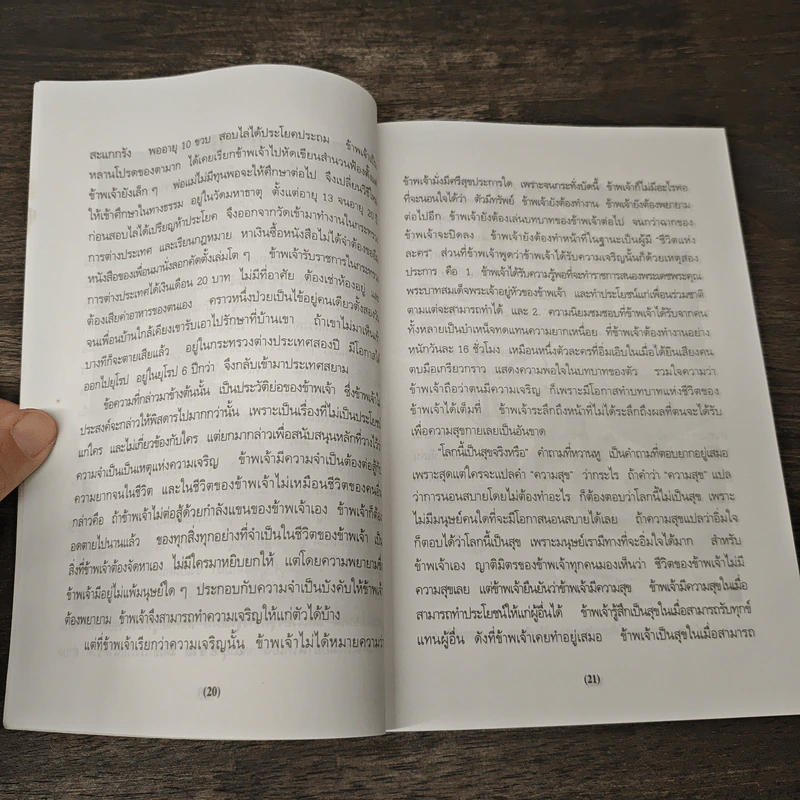 สะแกกรัง พออายุ 10 ขวบ สอบไล่ได้ประโยคประถม ข้าพเจ้าเป็น
หลานโปรดของตามาก ได้เคยเรียกข้าพเจ้าไปหัดเขียนสำนวนฟ้องตั้งแต่
ข้าพเจ้ายังเล็ก ๆ พ่อแม่ไม่มีทุนพอจะให้ศึกษาต่อไป จึงเปลี่ยนวิธีใหม่
ให้เข้าศึกษาในทางธรรม อยู่ในวัดมหาธาตุ ตั้งแต่อายุ 13 จนอายุ 20 ปี
ก่อนสอบไล่ได้เปรียญห้าประโยค จึงออกจากวัดเข้ามาทำงานในกระทรวง
การต่างประเทศ และเรียนกฎหมาย หาเงินซื้อหนังสือไม่ได้จำต้องขอยืม
หนังสือของเพื่อนมานั่งลอกคัดตั้งเล่มโต ๆ ข้าพเจ้ารับราชการในกระทรวง
การต่างประเทศได้เงินเดือน 20 บาท ไม่มีที่อาศัย ต้องเช่าห้องอยู่ และ
ต้องเสียค่าอาหารของตนเอง คราวหนึ่งป่วยเป็นไข้อยู่คนเดียวตั้งสองวัน
จนเพื่อนบ้านใกล้เคียงเขารับเอาไปรักษาที่บ้านเขา ถ้าเขาไม่มาเห็นเข้า
บางทีก็จะตายเสียแล้ว อยู่ในกระทรวงต่างประเทศสองปี มีโอกาสได้
ออกไปยุโรป อยู่ในยุโรป 6 ปีกว่า จึงกลับเข้ามาประเทศสยาม
ข้อความที่กล่าวมาข้างต้นนั้น เป็นประวัติย่อของข้าพเจ้า ซึ่งข้าพเจ้าไม่
ประสงค์จะกล่าวให้พิสดารไปมากกว่านั้น เพราะเป็นเรื่องที่ไม่เป็นประโยชน์
แก่ใคร และไม่เกี่ยวข้องกับใคร แต่ยกมากล่าวเพื่อสนับสนุนหลักที่วางไว้ว่า
ความจำเป็นเป็นเหตุแห่งความเจริญ ข้าพเจ้ามีความจำเป็นต้องต่อสู้กับ
ความยากจนในชีวิต และในชีวิตของข้าพเจ้าไม่เหมือนชีวิตของคนอื่น
กล่าวคือ ถ้าข้าพเจ้าไม่ต่อสู้ด้วยกำลังแขนของข้าพเจ้าเอง ข้าพเจ้าก็ต้อง
อดตายไปนานแล้ว ของทุกสิ่งทุกอย่างที่จำเป็นในชีวิตของข้าพเจ้า เป็น
สิ่งที่ข้าพเจ้าต้องจัดหาเอง ไม่มีใครมาหยิบยกให้ แต่โดยความพยายามซึ่ง
ข้าพเจ้ามีอยู่ไม่แพ้มนุษย์ใด ๆ ประกอบกับความจำเป็นบังคับให้ข้าพเจ้า
ต้องพยายาม ข้าพเจ้าจึงสามารถทำความเจริญให้แก่ตัวได้บ้าง
แต่ที่ข้าพเจ้าเรียกว่าความเจริญนั้น ข้าพเจ้าไม่ได้หมายความว่า
(20)
ข้าพเจ้ามั่งมีศรีสุขประการใด เพราะจนกระทั่งบัดนี้ ข้าพเจ้าก็ไม่มีอะไรพอ
ที่จะนอนใจได้ว่า ตัวมีทรัพย์ ข้าพเจ้ายังต้องทำงาน ข้าพเจ้ายังต้องพยายาม
ต่อไปอีก ข้าพเจ้ายังต้องเล่นบทบาทของข้าพเจ้าต่อไป จนกว่าฉากของ
ข้าพเจ้าจะปิดลง ข้าพเจ้ายังต้องทำหน้าที่ในฐานะเป็นผู้มี “ชีวิตแห่ง
ละคร” ส่วนที่ข้าพเจ้าพูดว่าข้าพเจ้าได้รับความเจริญนั้นก็ด้วยเหตุสอง
ประการ คือ 1. ข้าพเจ้าได้รับความรู้พอที่จะทำราชการสนองพระเดชพระคุณ
พระบาทสมเด็จพระเจ้าอยู่หัวของข้าพเจ้า และทำประโยชน์แก่เพื่อนร่วมชาติ
ตามแต่จะสามารถทำได้ และ 2. ความนิยมชมชอบที่ข้าพเจ้าได้รับจากคน
ทั้งหลายเป็นบำเหน็จทดแทนความยากเหนื่อย ที่ข้าพเจ้าต้องทำงานอย่าง
หนักวันละ 16 ชั่วโมง เหมือนหนึ่งตัวละครที่อิ่มเอิบในเมื่อได้ยินเสียงคน
ตบมือเกรียวกราว แสดงความพอใจในบทบาทของตัว รวมใจความว่า
ข้าพเจ้าถือว่าตนมีความเจริญ ก็เพราะมีโอกาสทำบทบาทแห่งชีวิตของ
ข้าพเจ้าได้เต็มที่ ข้าพเจ้าระลึกถึงหน้าที่ไม่ได้ระลึกถึงผลที่ตนจะได้รับ
เพื่อความสุขกายเลยเป็นอันขาด
“โลกนี้เป็นสุขจริงหรือ” คำถามที่หวานหู เป็นคำถามที่ตอบยากอยู่เสมอ
เพราะสุดแต่ใครจะแปลคำ “ความสุข” ว่ากระไร ถ้าคำว่า “ความสุข” แปล
ว่าการนอนสบายโดยไม่ต้องทำอะไร ก็ต้องตอบว่าโลกนี้ไม่เป็นสุข เพราะ
ไม่มีมนุษย์คนใดที่จะมีโอกาสนอนสบายได้เลย ถ้าความสุขแปลว่าอิ่มใจ
ก็ตอบได้ว่าโลกนี้เป็นสุข เพราะมนุษย์เรามีทางที่จะอิ่มใจได้มาก สำหรับ
ข้าพเจ้าเอง ญาติมิตรของข้าพเจ้าทุกคนมองเห็นว่า ชีวิตของข้าพเจ้าไม่มี
ความสุขเลย แต่ข้าพเจ้ายืนยันว่าข้าพเจ้ามีความสุข ข้าพเจ้ามีความสุขในเมื่อ
สามารถทำประโยชน์ให้แก่ผู้อื่นได้ ข้าพเจ้ารู้สึกเป็นสุขในเมื่อสามารถรับทุกข์
แทนผู้อื่น ดังที่ข้าพเจ้าเคยทำอยู่เสมอ ข้าพเจ้าเป็นสุขในเมื่อสามารถ
(21)